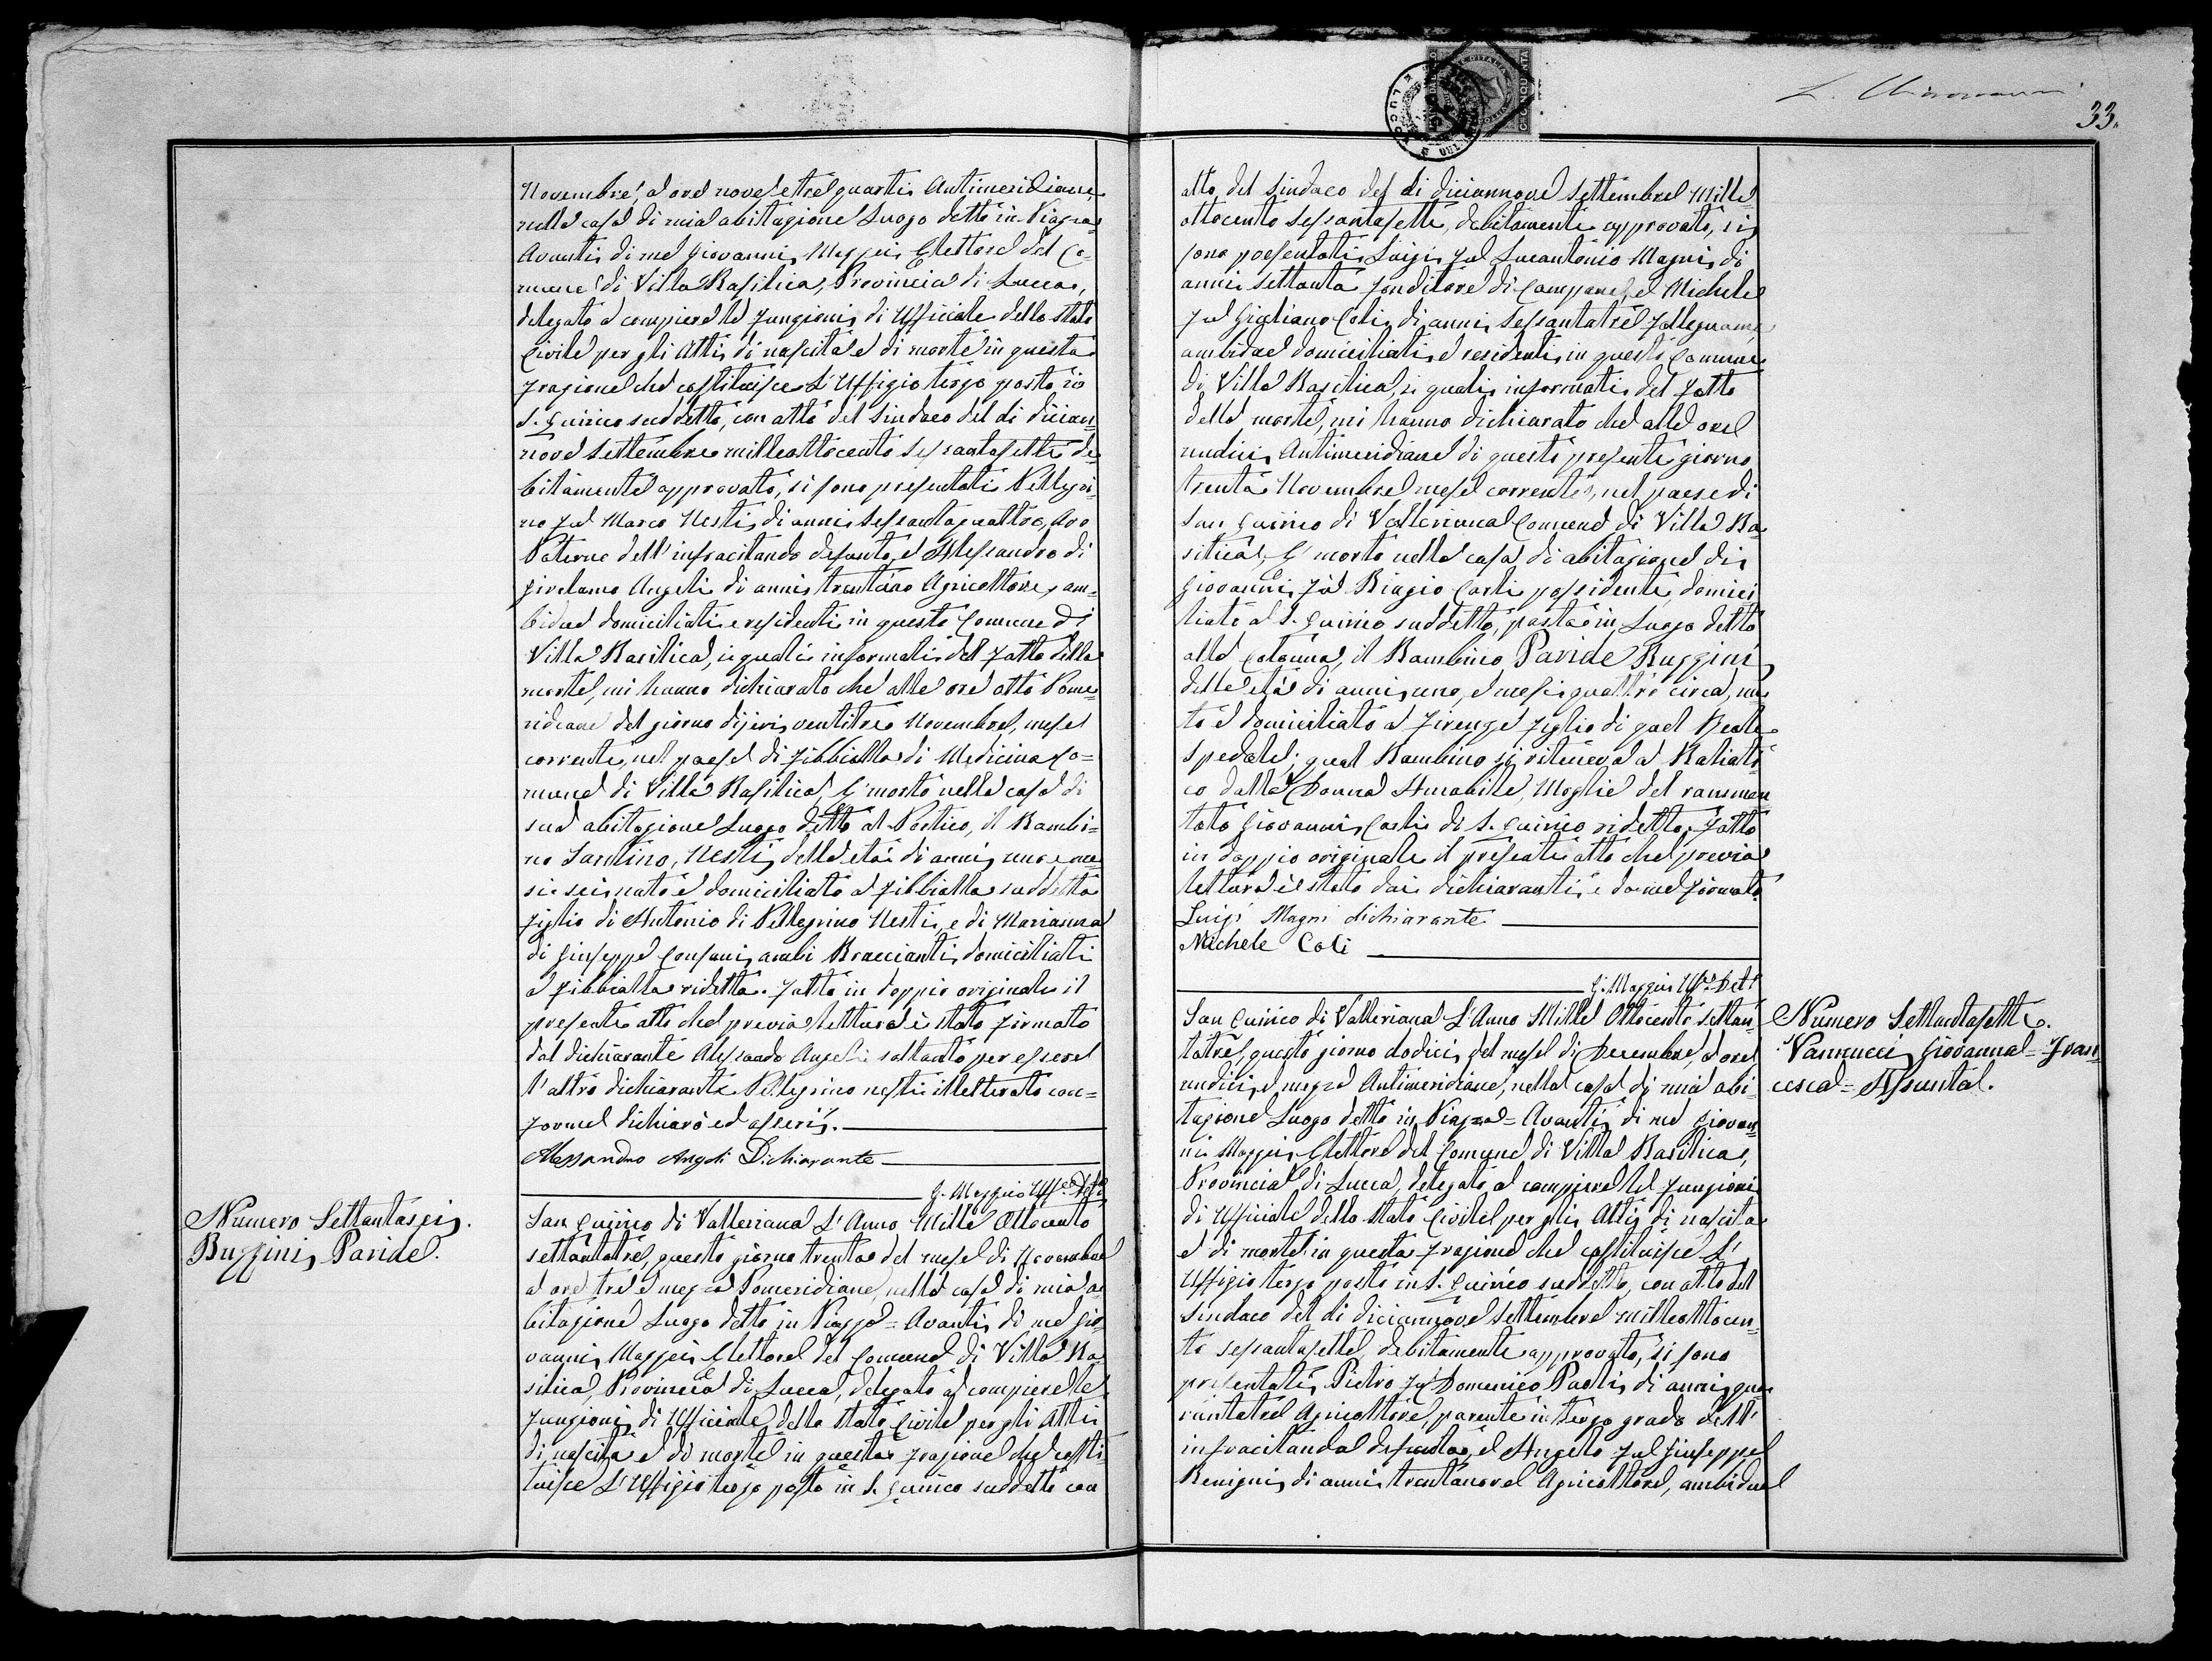 33.
Novembre, ad ore nove e tre quarti Antimeridiane,
nella casa di mia abitazione Luogo detto in Piazza
Avanti di me Giovanni Maggei Elettore del Co=
mune di Villa Basilica, Provincia di Lucca,
delegato a compiere le funzioni di Uffiziale dello Stato
Civile per gli Atti di nascita e di morte in questa
frazione che costituisce L'Uffizio terzo posto in
S. Quirico suddetto, con atto del Sindaco del di dician=
nove Settembre milleottocento sessantasette de=
bitamente approvato, si sono presentati Pellegri=
no fu Marco Nesti, di anni sessantaquattro, Avo
Paterno dell'infracitando defunto, e Alessandro di
Girolamo Angeli di anni trentuno Agricoltore, am=
bidue domiciliati e residenti in questo Comune di
Villa Basilica, i quali informati del fatto della
morte, mi hanno dichiarato che alle ore otto Pome=
ridiane del giorno di jeri ventitre Novembre, mese
corrente, nel paese di Fibbialla di Medicina Co=
mune di Villa Basilica, E' morto nella casa di
sua abitazione Luogo detto al Portico, il Bambi=
no Santino, Nesti, della età di anni uno e me=
si sei nato e domiciliato a Fibbialla suddetta
figlio di Antonio di Pellegrino Nesti, e di Marianna
di Giuseppe Consani, ambi Braccianti, domiciliati
a Fibbialla ridetta. Fatto in doppio originale il
presente atto che previa lettura è stato firmato
dal dichiarante Alessandro Angeli soltanto per essere
l'altro dichiarante Pellegrino Nesti illetterato con=
forme dichiarò ed asserì.
Alessandro Angeli Dichiarante
G. Maggei Uff.
Numero Settantasei.
Buzzini, Paride.
San Quirico di Valleriana L'Anno Mille Ottocento
settantatre, questo giorno trenta del mese di Novembre
ad ore tre e mezza Pomeridiane, nella casa di mia a=
bitazione Luogo detto in Piazza = Avanti di me Gio=
vanni Maggei Elettore del Comune di Villa Ba=
silica, Provincia di Lucca, delegato a compiere le
funzioni di Ufficiale dello Stato Civile per gli Atti
di nascita e di morte in questa frazione che costi=
tuisce L'Uffizio terzo posto in S. Quirico suddetto con
atto del Sindaco del di diciannove Settembre Mille
ottocento sessantasette, debitamente approvato, si
sono presentati Luigi fu Lucantonio Magni, di
anni settanta fonditore di Campane, e Michele
fu Gigliano Coli, di anni sessantatrè falegname,
ambidue domiciliati e residenti in questo Comune
di Villa Basilica, i quali informati del fatto
della morte, mi hanno dichiarato che alle ore
undici Antimeridiane di questo presente giorno
trenta Novembre mese corrente, nel paese di
San Quirico di Valleriana Comune di Villa Ba=
silica, E' morto nella casa di abitazione di
Giovanni fu Biagio Carli possidente, domici
liato a S. Quirico suddetto, posta in Luogo detto
alla Colonna, il Bambino Paride Buzzini,
della età di anni uno, e mesi quattro circa, na=
to e domiciliato a Firenze figlio di quel Reale
Spedale; qual Bambino si riteneva a Baliati=
co dalla Donna Amabile, Moglie del rammen
tato Giovanni Carli di S. Quirico ridetto. Fatto
in doppio originale il presente atto che previa
lettura è stato dai dichiaranti e da me firmato.
Luigi Magni dichiarante
Michele Coli
G. Maggei
Numero Settantasette.
Vannucci, Giovanna = Fran=
cesca = Assunta.
San Quirico di Valleriana L'Anno Mille Ottocento settan=
tatre, questo giorno dodici del mese di Decembre, ad ore
undici e mezza Antimeridiane, nella casa di mia abi=
tazione Luogo detto in Piazza = Avanti di me Giovan=
ni Maggei, Elettore del Comune di Villa Basilica,
Provincia di Lucca, delegato a compiere le funzioni
di Ufficiale dello Stato Civile per gli Atti di nascita
e di morte in questa frazione che costituisce L'
Uffizio terzo posto in S. Quirico suddetto, con atto del
Sindaco del di diciannove Settembre milleottocen=
to sessantasette, debitamente approvato, si sono
presentati, Pietro fu Domenico Paoli, di anni qua=
rantatre Agricoltore, parente in terzo grado dell'
infracitanda defunta, e Angelo fu Giuseppe
Benigni, di anni trentanove Agricoltore, ambidue